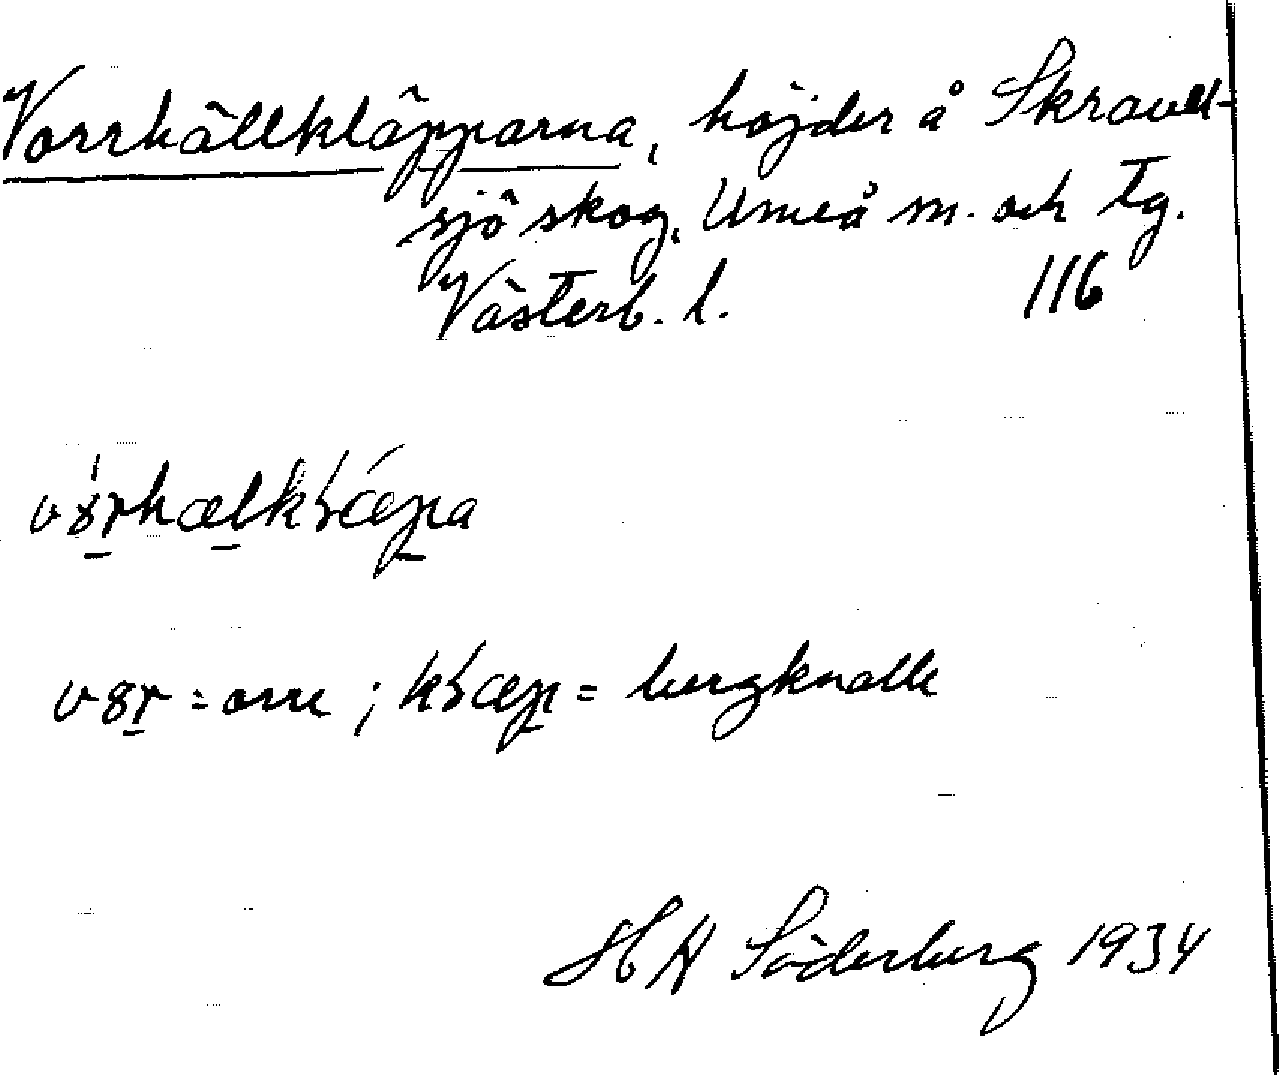 Vorrhällkläpparna, höjder å Skravel-
sjö skog, Umeå m. och tg.
Västerb. l. 116
= orre ; = bergknalle
H A Söderberg 1934